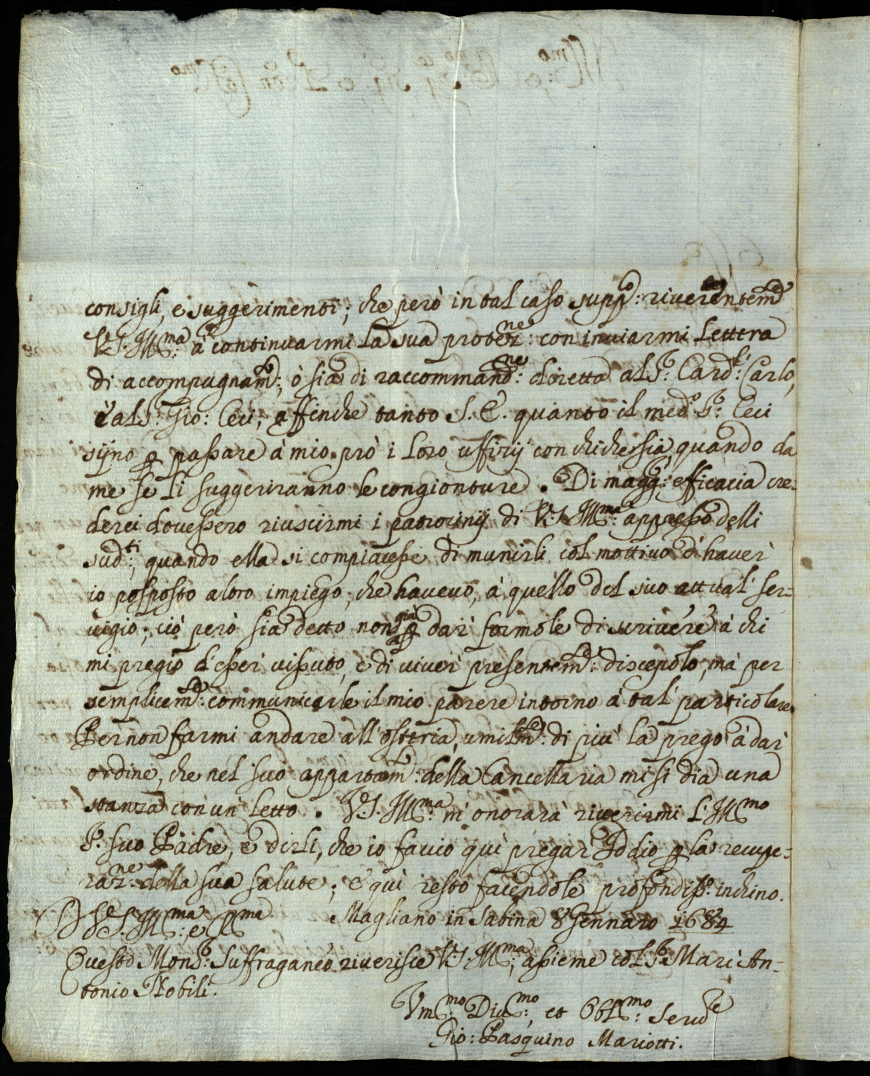 consigli, e suggerimenti; che però in tal caso supp.co: riverentem.te
V.S. Ill.ma: à continuarmi la sua protez.ne: con inviarmi Lettra
di accompagnam.to; ò sia di raccommand.ne: diretta al S.r Card.le: Carlo,
è al S.r: Gio: Ceci, affinche tanto S. E. quanto il med.o S.r: Ceci
sijno p passare à mio prò i loro uffizij con chichessia quando da
me se li suggeriranno le congionture. Di magg.r: efficacia cre-
derei dovessero riuscirmi i patrocinij di V.S. Ill.ma: appresso delli
sud.ti; quando ella si compiacesse di munirli col mottivo d'haver
io posposto a loro impiego, che havevo, à quello del suo attual ser-
vigio; ciò però sia detto non già p dar formole di scrivere à chi
mi pregio d'esser vissuto, e di viver presentem.te: discepolo, mà per
semplicem.te: communicarle il mio parere intorno à tal particolare
Per non farmi andare all'osteria, umilm.te: di più la prego à dar
ordine, che nel suo appartam.to: della Cancellaria mi si dia una
stanza con un letto. V.S. Ill.ma: m'onorarà riverirmi l'Ill.mo
S.r suo Padre, e dirli, che io faccio quì pregar Iddio p la recupe-
raz.ne: della sua salute; e quì resto facendole profondiss.o inchino.
D V.S. Ill.ma: e R.ma Magliano in Sabina 8 Gennaro 1684
Questo Mons.r: Suffraganeo riverisce V.S. Ill.ma; assieme col S.r Marc'An-
tonio Nobili.
Vm.mo Div.mo; et Obl.mo: Serv.re
Gio: Pasquino Mariotti.